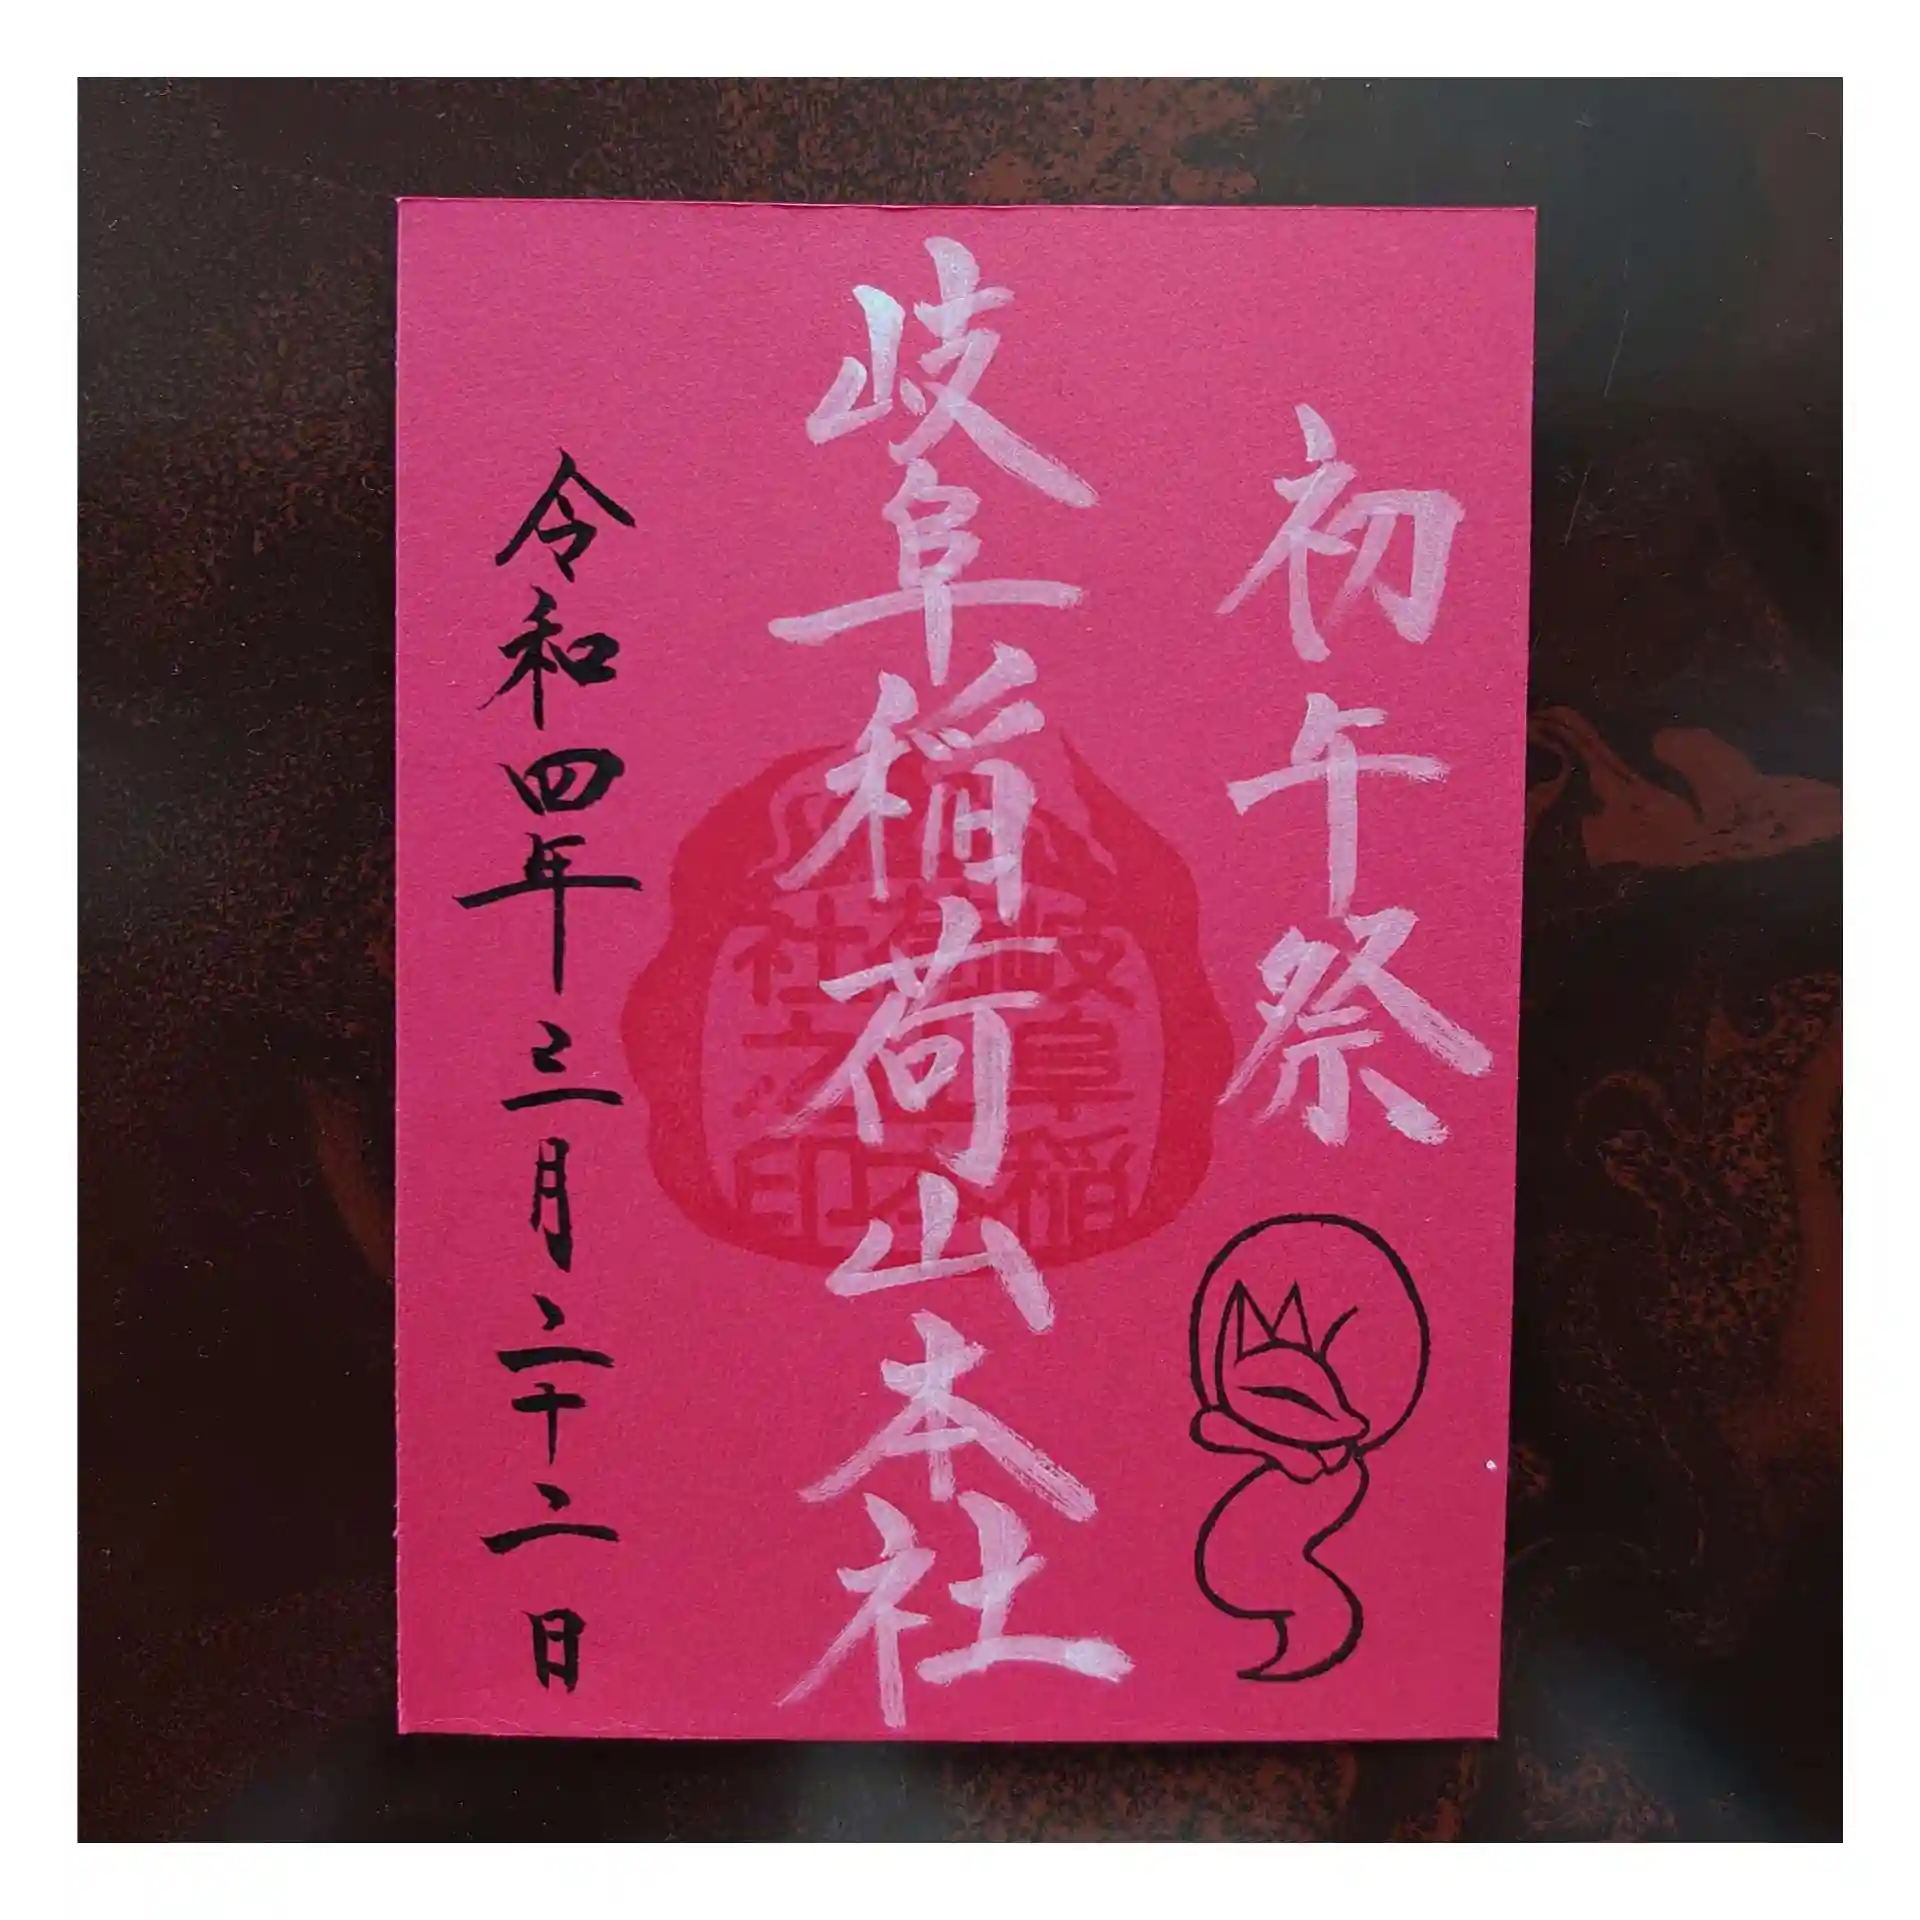 初午祭
岐阜稲荷山本社
岐阜稲
荷山本
社之印
令和四年三月二十二日